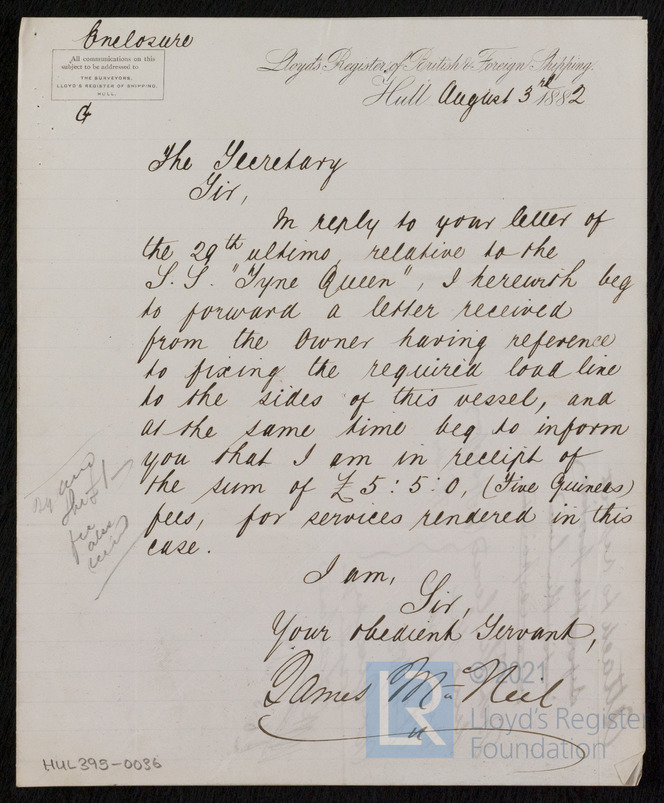 Enclosure
All communications on this
subject to be addressed to
THE SURVEYORS,
LLOYD'S REGISTER OF SHIPPING,
HULL.
Lloyd's Register of British & Foreign Shipping.
Hull August 3rd 1882
The Secretary
Sir,
In reply to your letter of
the 29th ultimo, relative to the
S.S. "Tyne Queen", I herewith beg
to forward a letter received
from the Owner having reference
to fixing the required load line
to the sides of this vessel, and
at the same time beg to inform
you that I am in receipt of
the sum of £5:5:0, (Five Guineas)
fees, for services rendered in this
case.
I am,
Sir,
Your obedient Servant,
James McNeil
© 2021
LR
Lloyd's Register
Foundation
HUL395-0036